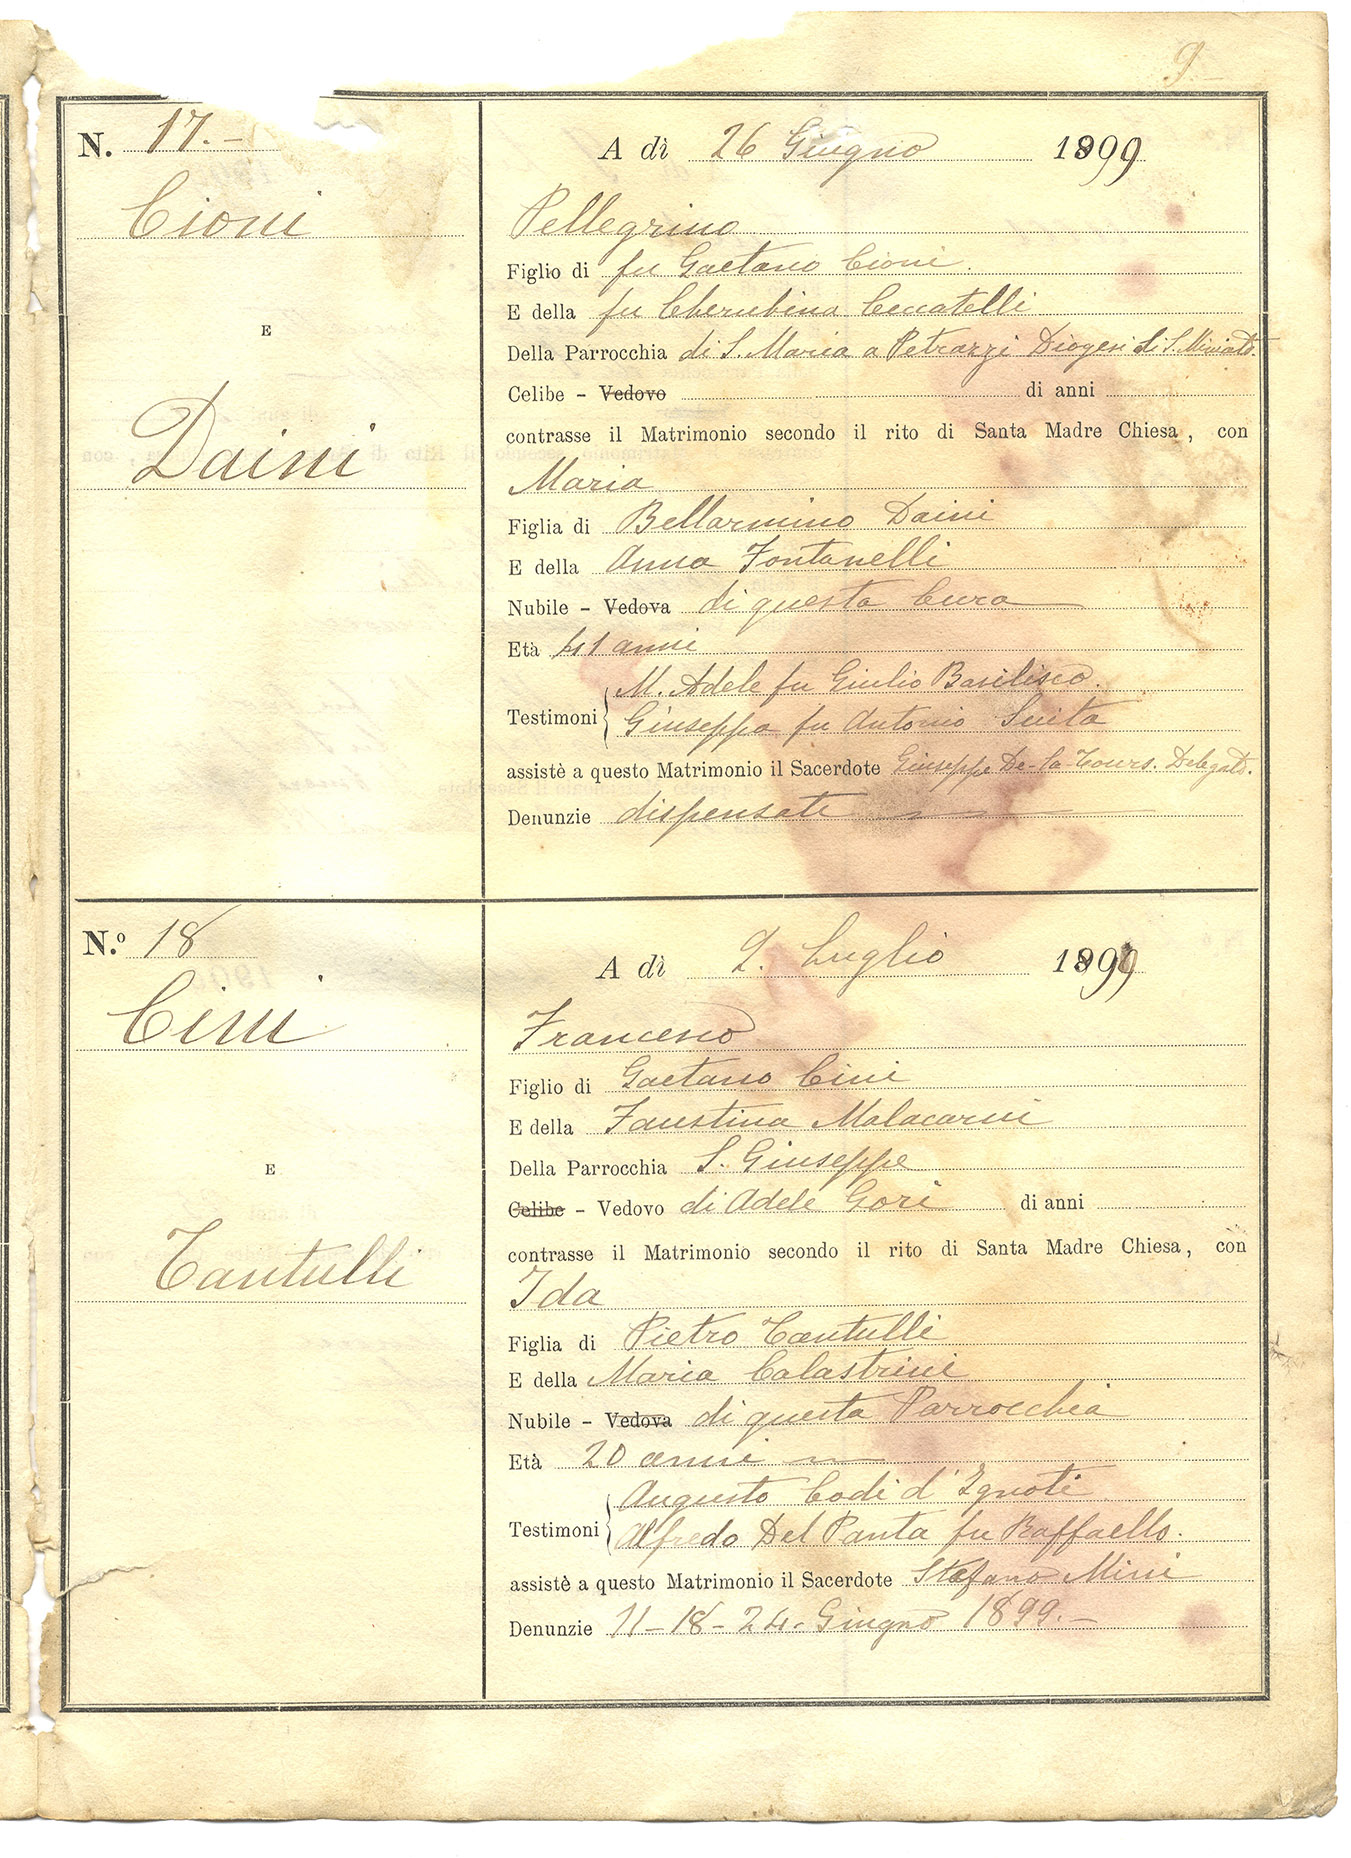 9
N. 17.-
Cioni
E
Daini
A dì 26 Giugno 1899
Pellegrino
Figlio di fu Gaetano Cioni
E della fu Cherubina Ceccatelli
Della Parrocchia di S. Maria a Petrazzi Diogesi di S. Miniato.
Celibe - Vedovo di anni
contrasse il Matrimonio secondo il rito di Santa Madre Chiesa, con
Maria
Figlia di Bellarmino Daini
E della Anna Fontanelli
Nubile - Vedova di questa Cura
Età 41 anni
Testimoni M. Adele fu Giulio Basilisco.
Giuseppa fu Antonio
assistè a questo Matrimonio il Sacerdote Giuseppe De-la-Tours. Delegato.
Denunzie dispensate
N.º 18
Cini
E
Tantulli
A dì 2. Luglio 1899
Francesco
Figlio di Gaetano Cini
E della Faustina Malacarni
Della Parrocchia S. Giuseppe
Celibe - Vedovo di Adele Gori di anni
contrasse il Matrimonio secondo il rito di Santa Madre Chiesa, con
Ida
Figlia di Pietro Tantulli
E della Maria Calastrini
Nubile - Vedova di questa Parrocchia
Età 20 anni
Testimoni Augusto Codi d'Ignoti
Alfredo Del Panta fu Raffaello.
assistè a questo Matrimonio il Sacerdote Stefano Mini
Denunzie 11-18-24- Giugno 1899.-